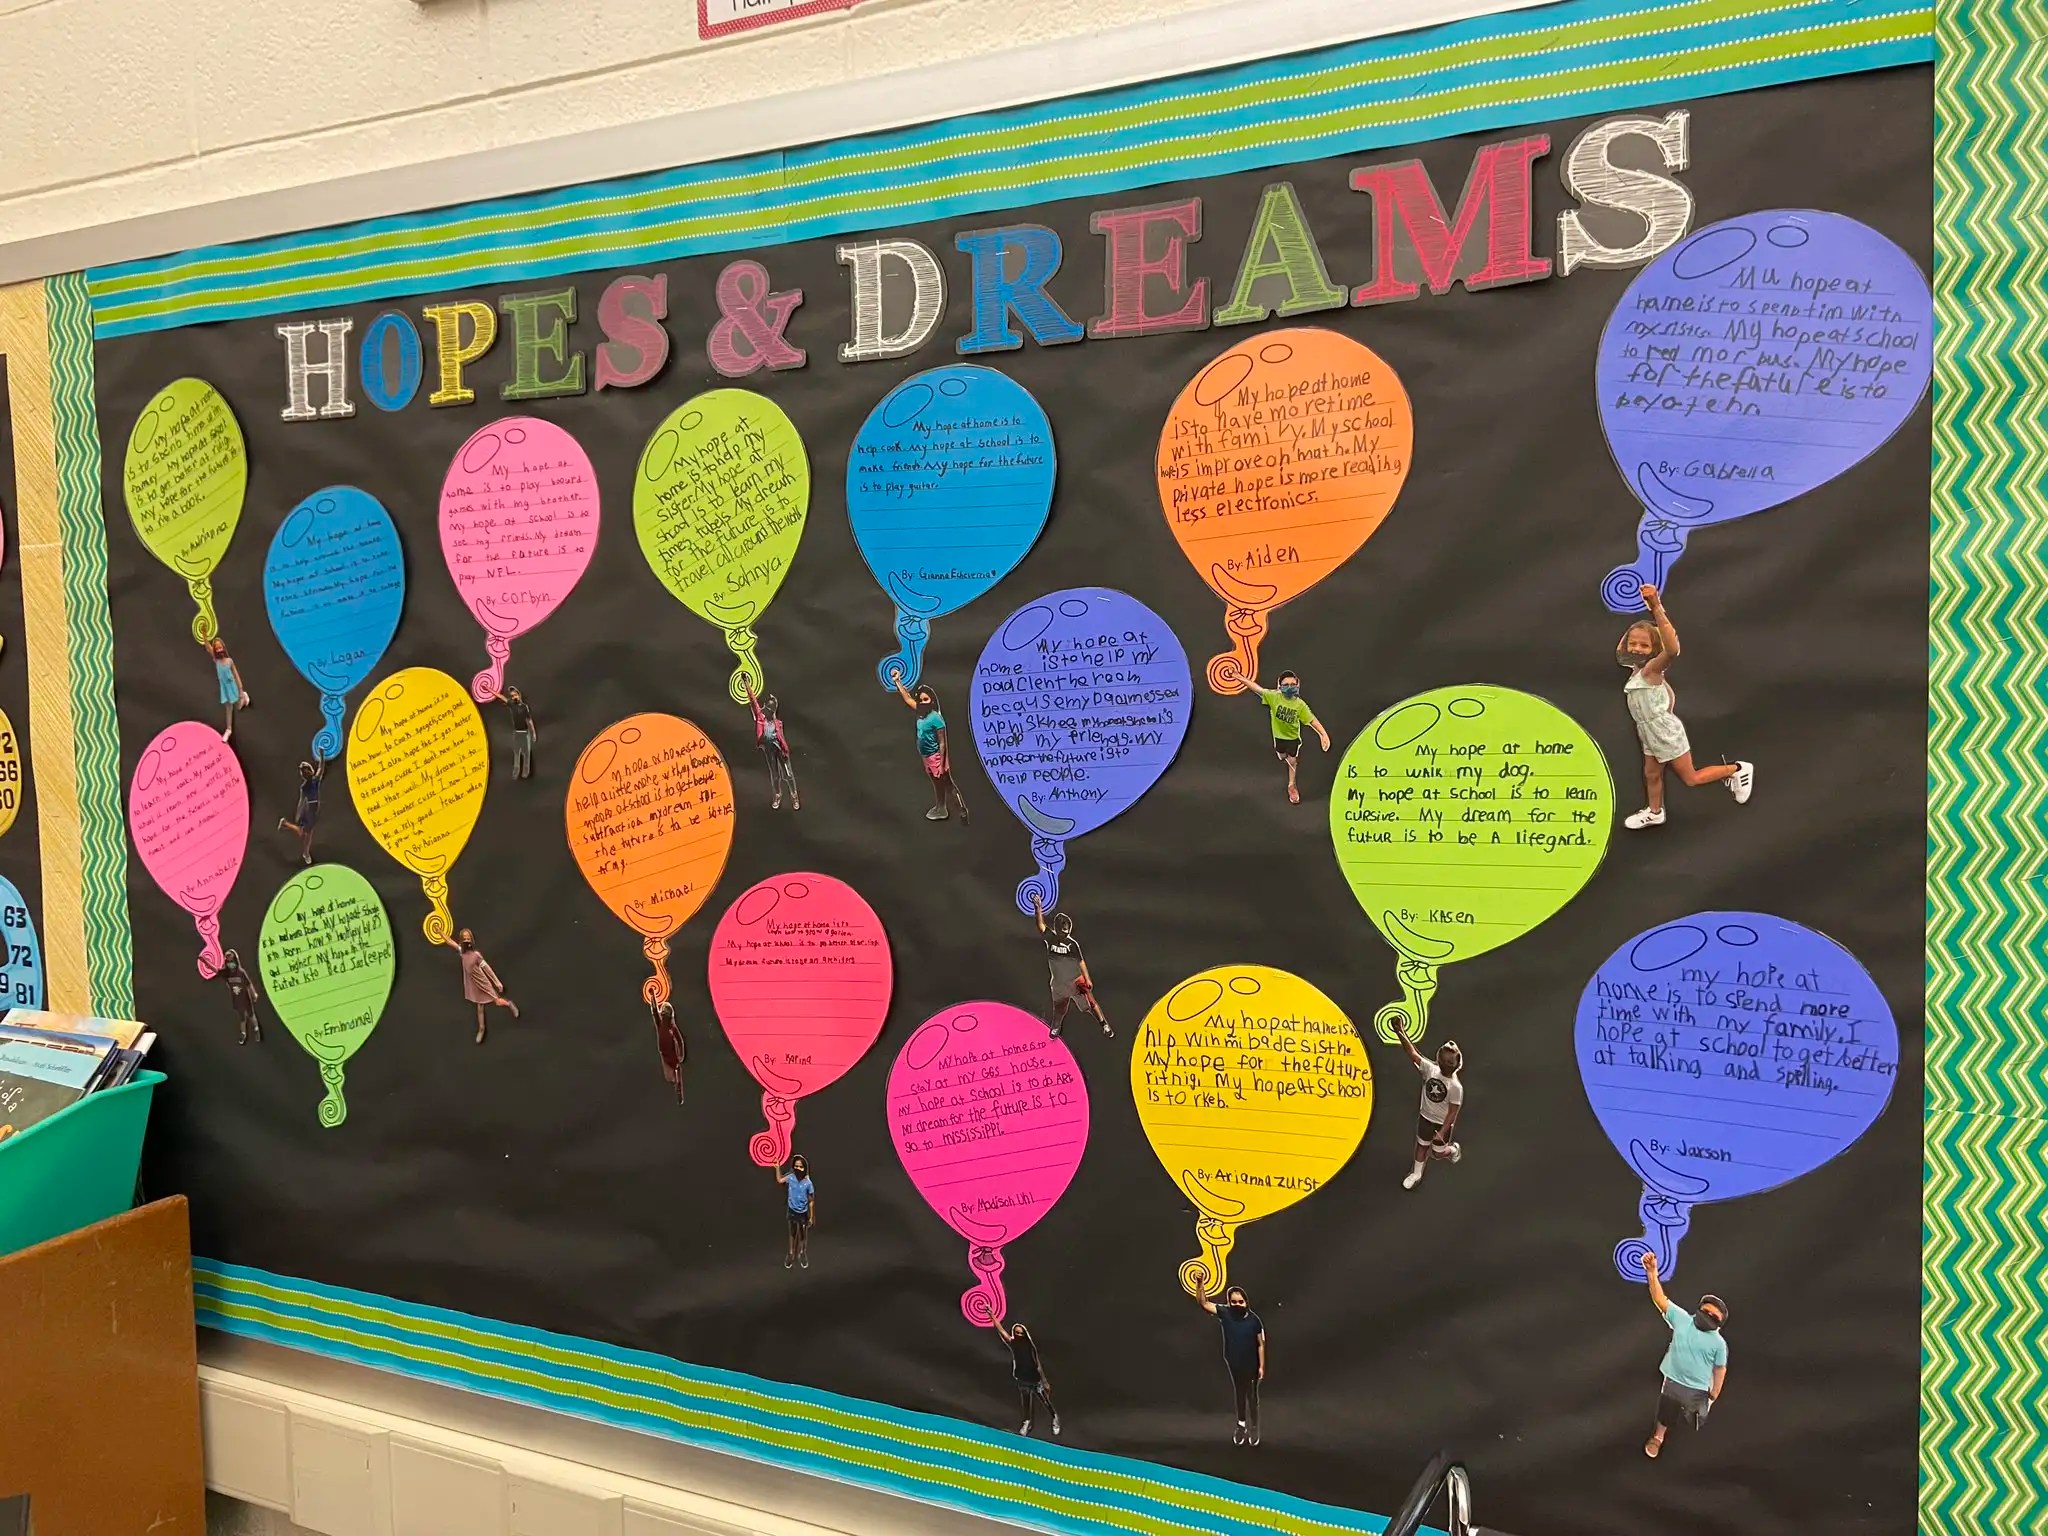 HOPES & DREAMS
My hope at home
is to spend time with
family. My hope at school
is to get better at reading.
My hope for the future is
to write a book.
By: Adrianna
My hope at home
is to help around the house.
My hope at school is to
By: Logan
My hope at
home is to play bourd
games with my brother.
My hope at school is to
see my friends. My dream
for the future is to
play NFL.
By: Corbyn
My hope at
home is to help my
sister. My hope at
shool is to learn my
times tabels. My dream
for the future is to
travel all around the world
By: Sahnya
My hope at home is to
help cook. My hope at school is to
make friends. My hope for the future
is to play guitar.
By: Gianna Echeverria
My hope at home
is to have more time
with family. My school
hope is improve on math. My
private hope is more reading
less electronics.
By: Aiden
My hope at
home is to spend tim with
my sister. My hope at school
to red mor bus. My hope
for the future is to
By: Gabrella
My hope at home is
to learn to
By: Annabelle
My hope at home is to
learn how to cook spagetti, corn, and
tacos. I also hope that I get better
at reading cause I don't now how to
read that well. My dream is to
be a teacher cause I now I
be a rely good teacher when
I grow up
By: Arianna
my hope at home
My hope at school
is to learn how to multiply by
and higher My hope in the
future is to
By: Emmanuel
My hope at home is to
help a little more with
my hope at school is to get better
subtraction my dream for
the future is to be in the
army.
By: Michael
My hope at home is to
learn how to grow a garden.
My hope at school is to
By: Karina
My hope at
home is to help my
Dad Clen the room
because my Dad messed
up his
to help my friends. My
hope for the future is to
help people.
By: Anthony
My hope at home
is to walk my dog.
My hope at school is to learn
cursive. My dream for the
futur is to be a lifegard.
By: Kasen
My hope at home is to
stay at my GGs house.
my hope at school is to do Art
my dream for the future is to
go to mississippi.
By: Madison Uhl
My hop at hame is to
hlp
My hope for the future
ritnig. My hope at School
is to rkeb.
By: Arianna zurst
my hope at
home is to spend more
time with my family. I
hope at school to get better
at talking and spelling.
By: Jaxson
63
72
81
72
66
60